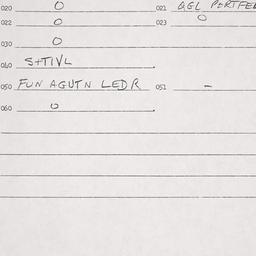 020 0 021 AGL PORTFEL
022 0 023 0
030 0
060 S+TIVL
050 FUN AGUTN LEDR 051 -
060 0